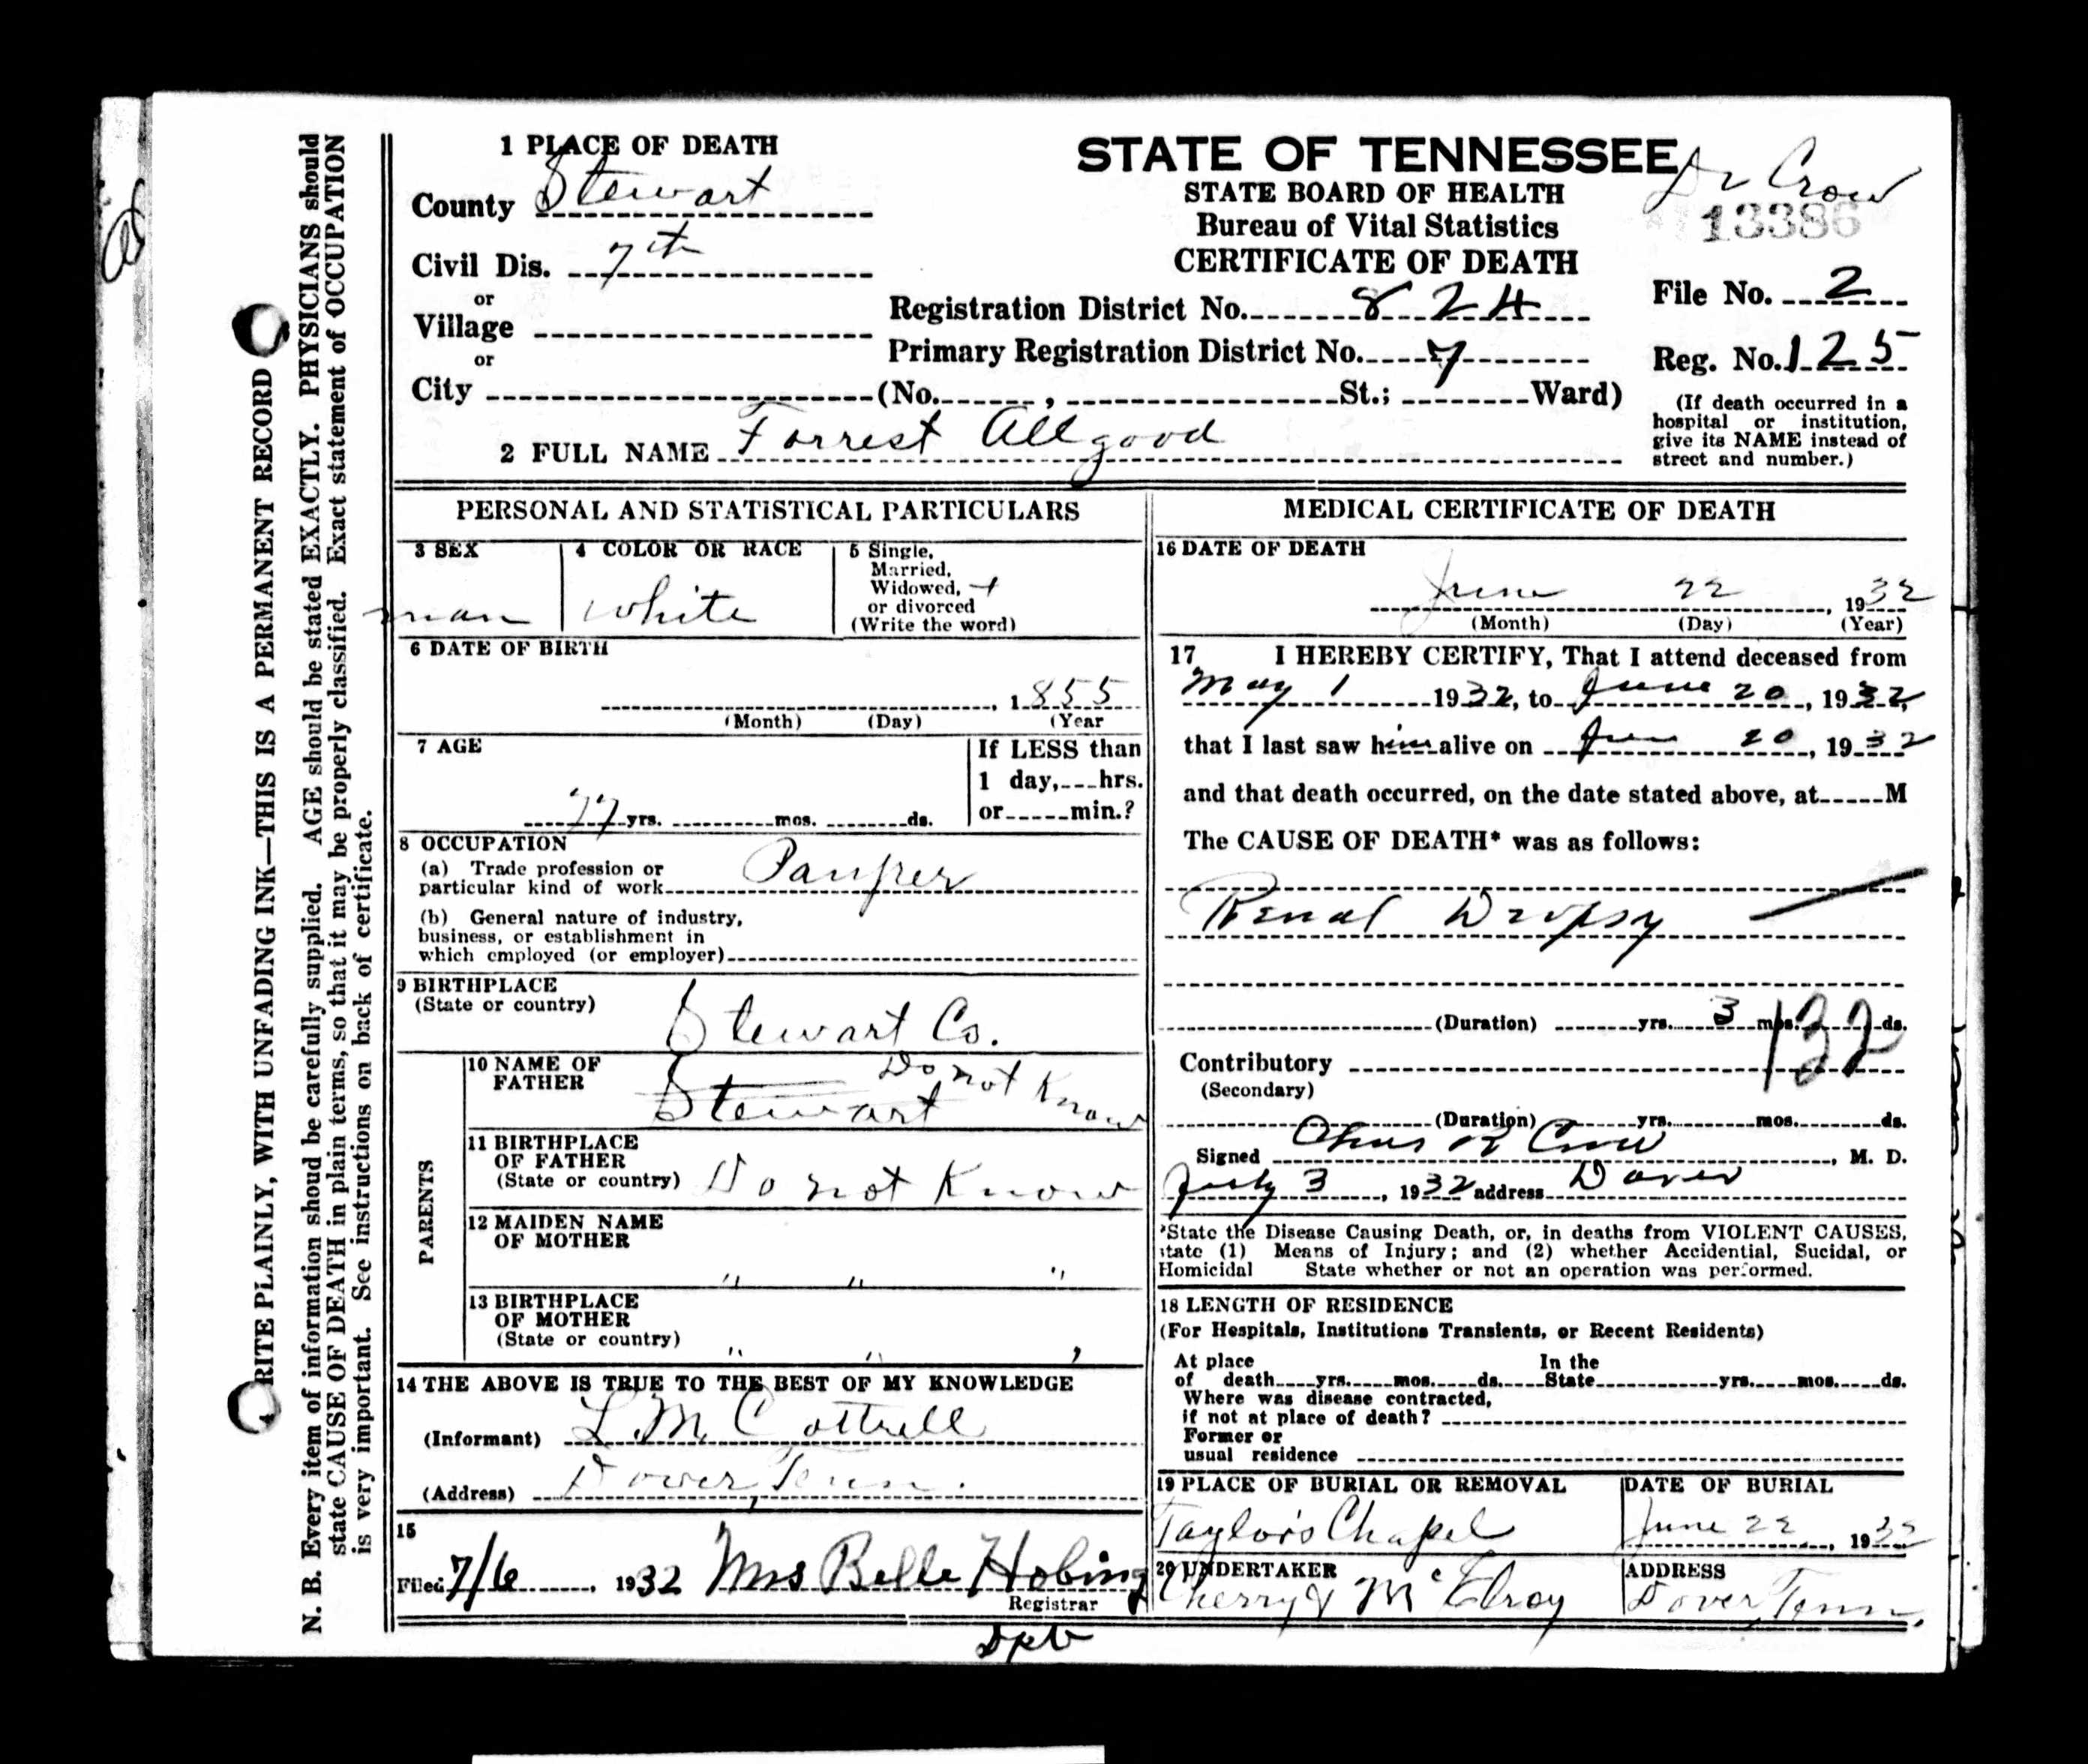 1 PLACE OF DEATH
County Stewart
Civil Dis. 7th
or
Village
or
City (No. , St.; Ward)
STATE OF TENNESSEE
STATE BOARD OF HEALTH
Bureau of Vital Statistics
CERTIFICATE OF DEATH
Dr Crow
13386
Registration District No. 824
Primary Registration District No. 7
File No. 2
Reg. No. 125
(If death occurred in a
hospital or institution,
give its NAME instead of
street and number.)
2 FULL NAME Forrest Allgood
PERSONAL AND STATISTICAL PARTICULARS
3 SEX
man
4 COLOR OR RACE
white
5 Single,
Married,
Widowed,
or divorced
(Write the word)
6 DATE OF BIRTH
, 1855
(Month) (Day) (Year
7 AGE
77 yrs. mos. ds.
If LESS than
1 day, hrs.
or min.?
8 OCCUPATION
(a) Trade profession or
particular kind of work Pauper
(b) General nature of industry,
business, or establishment in
which employed (or employer)
9 BIRTHPLACE
(State or country) Stewart Co.
PARENTS
10 NAME OF
FATHER Stewart Do not Know
11 BIRTHPLACE
OF FATHER
(State or country) Do not Know
12 MAIDEN NAME
OF MOTHER
" " "
13 BIRTHPLACE
OF MOTHER
(State or country) " " "
14 THE ABOVE IS TRUE TO THE BEST OF MY KNOWLEDGE
(Informant) L.M. Cottrell
(Address) Dover, Tenn.
15
Filed 7/6, 1932 Mrs Belle Hobing
Registrar
MEDICAL CERTIFICATE OF DEATH
16 DATE OF DEATH
June 22, 1932
(Month) (Day) (Year)
17 I HEREBY CERTIFY, That I attend deceased from
May 1 1932, to June 20, 1932,
that I last saw him alive on June 20, 1932
and that death occurred, on the date stated above, at M
The CAUSE OF DEATH* was as follows:
Renal Dropsy
(Duration) yrs. 3 mos. ds.
132
Contributory
(Secondary)
(Duration) yrs. mos. ds.
Signed Chas R Crow, M. D.
July 3, 1932 address Dover
*State the Disease Causing Death, or, in deaths from VIOLENT CAUSES,
state (1) Means of Injury; and (2) whether Accidential, Sucidal, or
Homicidal State whether or not an operation was performed.
18 LENGTH OF RESIDENCE
(For Hospitals, Institutions Transients, or Recent Residents)
At place In the
of death yrs. mos. ds. State yrs. mos. ds.
Where was disease contracted,
if not at place of death?
Former or
usual residence
19 PLACE OF BURIAL OR REMOVAL
Taylor's Chapel
DATE OF BURIAL
June 22, 1932
20 UNDERTAKER
Cherry & McElroy
ADDRESS
Dover, Tenn.
RITE PLAINLY, WITH UNFADING INK—THIS IS A PERMANENT RECORD
N. B. Every item of information shoud be carefully supplied. AGE should be stated EXACTLY. PHYSICIANS should
state CAUSE OF DEATH in plain terms, so that it may be properly classified. Exact statement of OCCUPATION
is very important. See instructions on back of certificate.